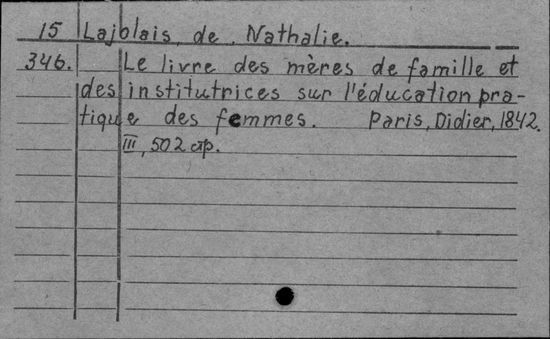 15 Lajolais, de, Nathalie.
346. Le livre des mères de famille et
des institutrices sur l'éducation pra-
tique des femmes. Paris, Didier, 1842.
III, 502 стр.